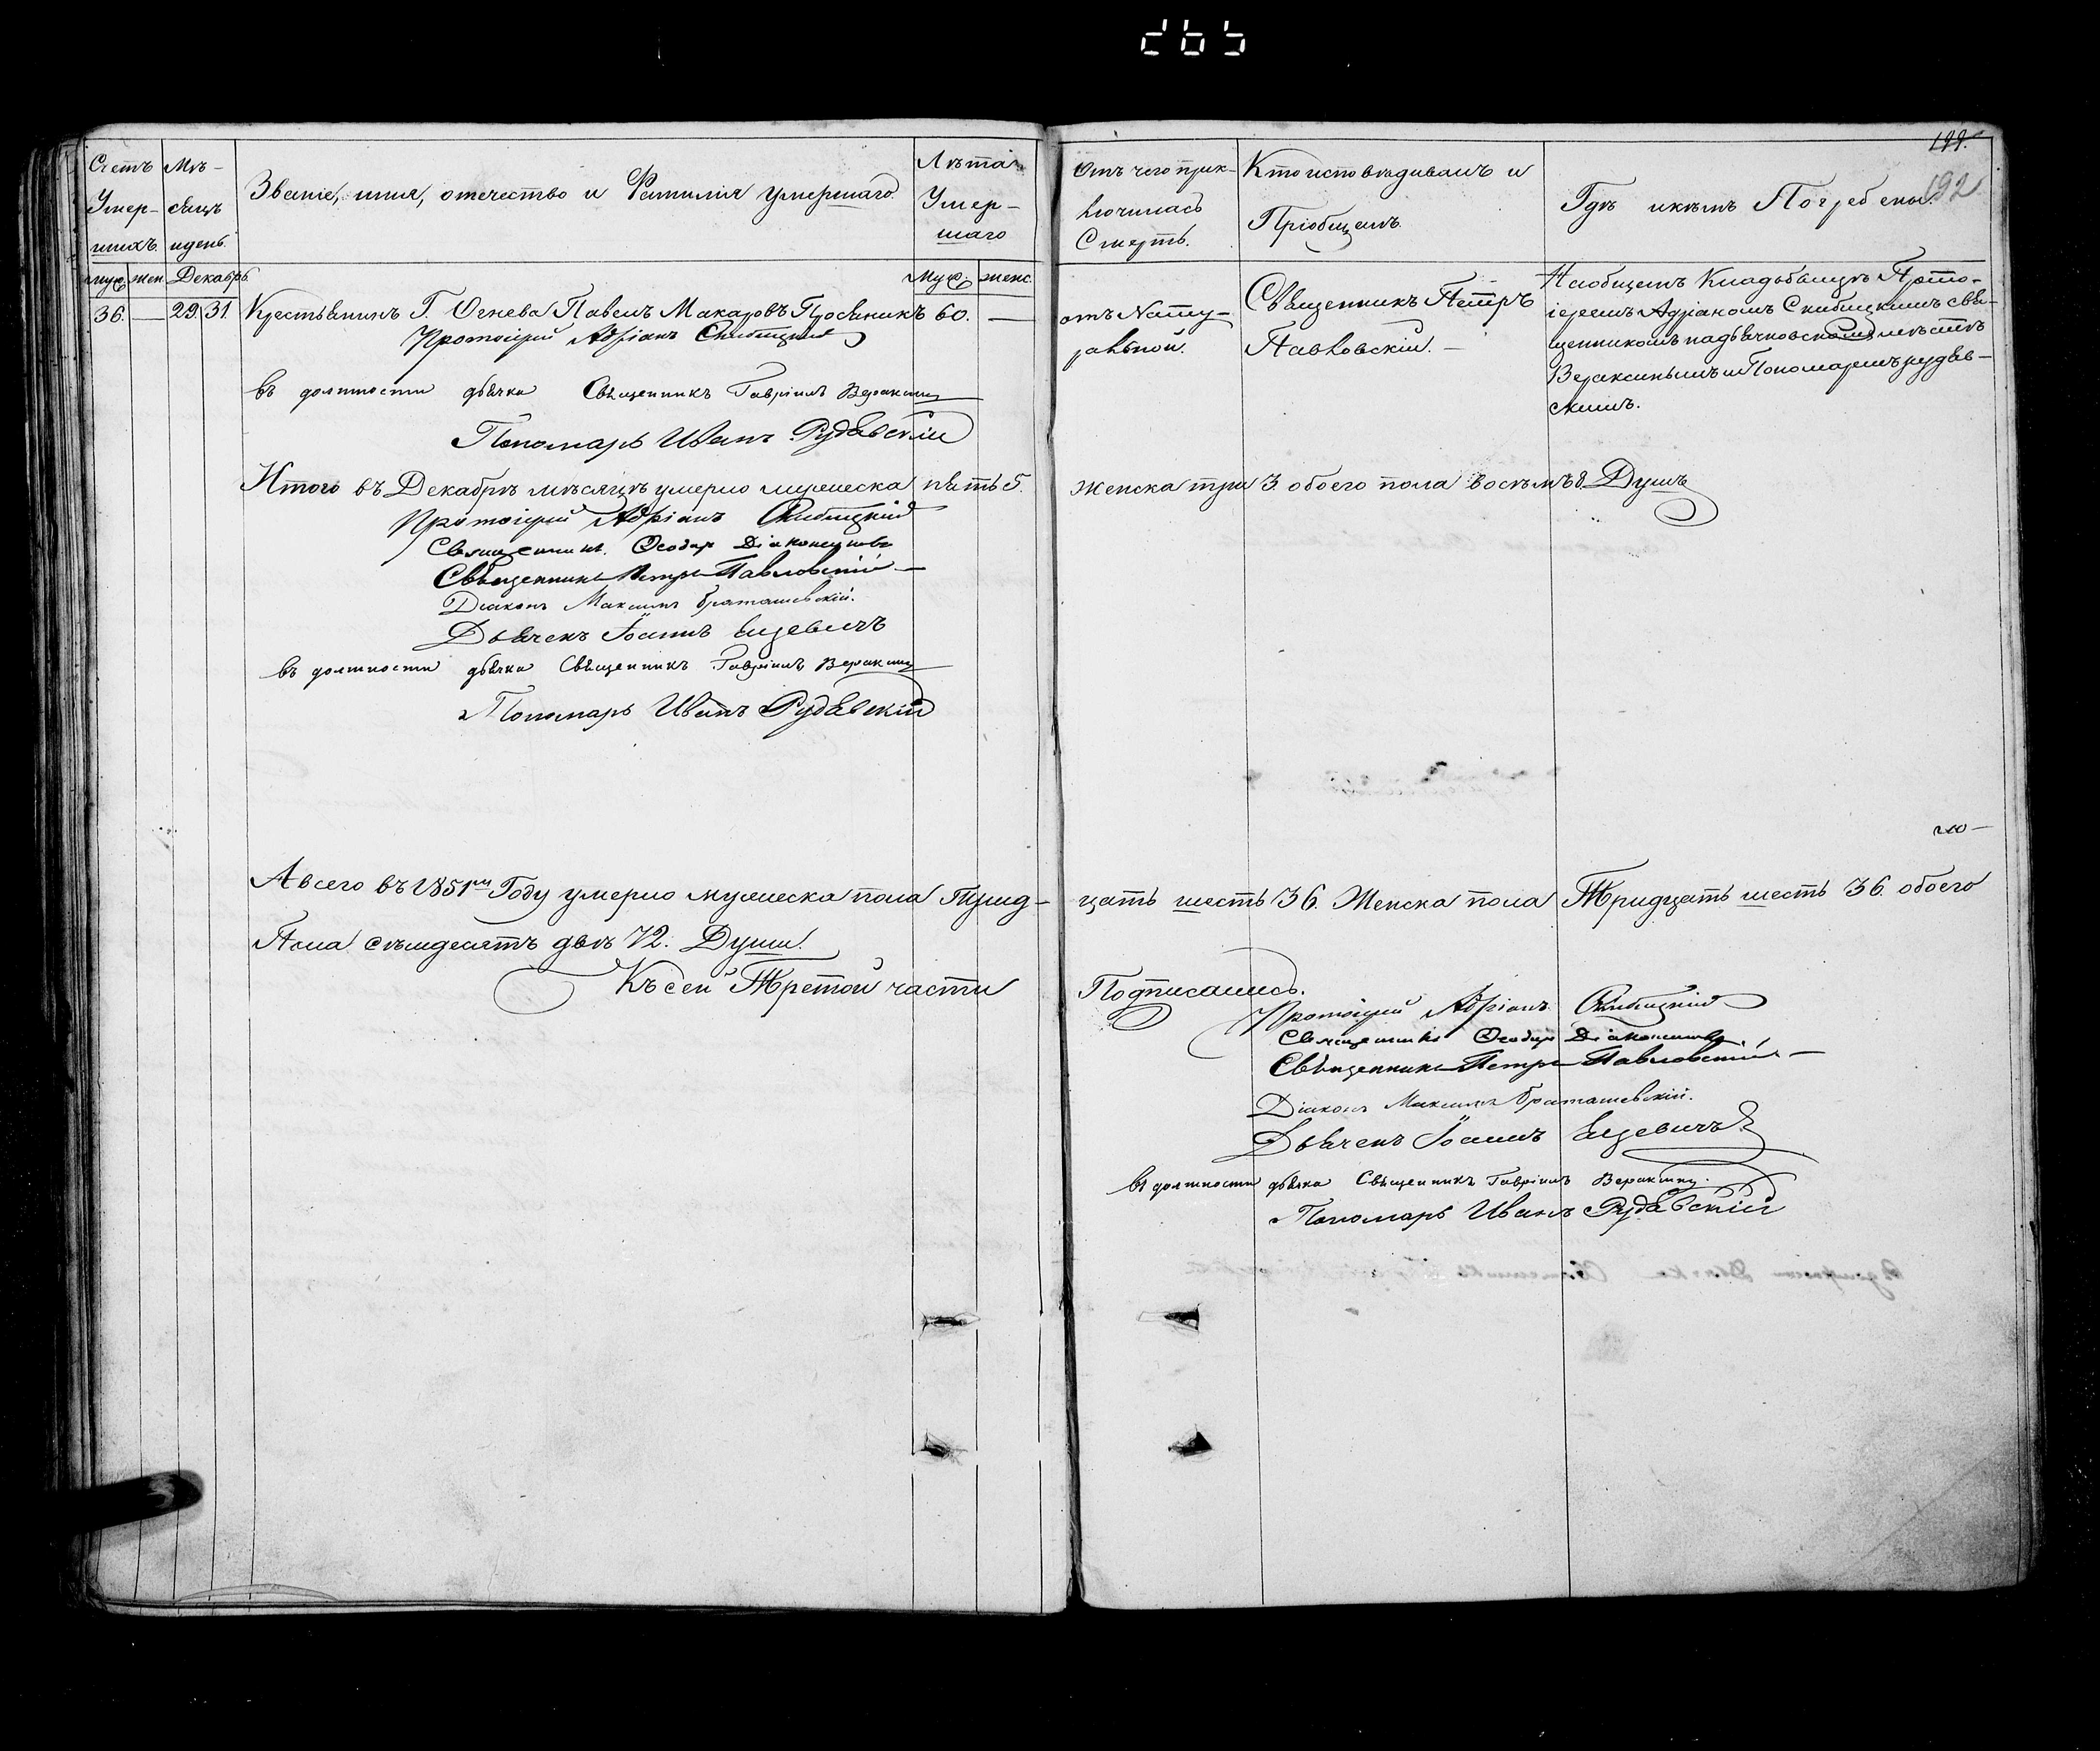 265
199.
192
Счетъ Умер-шихъ.
Мѣ-сяцъ и день.
Званіе, имя, отечество и Фамилія умершаго.
Лѣта Умер-шаго
Отъ чего прик-лючилась Смерть.
Кто исповѣдивалъ и Пріобщалъ.
Гдѣ и кѣмъ Погребены.
муж. жен. Декабрь. Муж. женс.
36. — 29. 31. Крестьянинъ Г. Огнева Павелъ Макаровъ Просяникъ 60. —
отъ Нату-ральной.
Священникъ Петръ Павловскій. —
На общемъ Кладьбищѣ Прото-
іереемъ Адріаномъ Скибицкимъ свя-
щенникомъ на дьячковскомъ мѣстѣ
Вераксинымъ и Пономаремъ Рудав-
скимъ.
Протоіерей Адріанъ Скибицкій
въ должности дьячка Священникъ Гавріилъ Вераксинъ
Пономарь Иванъ Рудавскій
Итого въ Декабрѣ мѣсяцѣ умерло мужеска пять 5. женска три 3. обоего пола восѣмъ 8. Душъ
Протоіерей Адріанъ Скибицкій
Священникъ Феодоръ
Священникъ Петръ Павловскій —
Діаконъ Максимъ Браташевскій.
Дьячекъ Іоаннъ
въ должности дьячка Священникъ Гавріилъ Вераксинъ
Пономарь Иванъ Рудавскій
А всего въ 1851мъ Году умерло мужеска пола Трид-цать шесть 36. Женска пола Тридцать шесть 36. обоего
Пола сѣмдесятъ двѣ 72. Души.
Къ сей Третой части Подписались.
Протоіерей Адріанъ Скибицкій
Священникъ Феодоръ
Священникъ Петръ Павловскій —
Діаконъ Максимъ Браташевскій.
Дьячекъ Іоаннъ
въ должности дьячка Священникъ Гавріилъ Вераксинъ.
Пономарь Иванъ Рудавскій